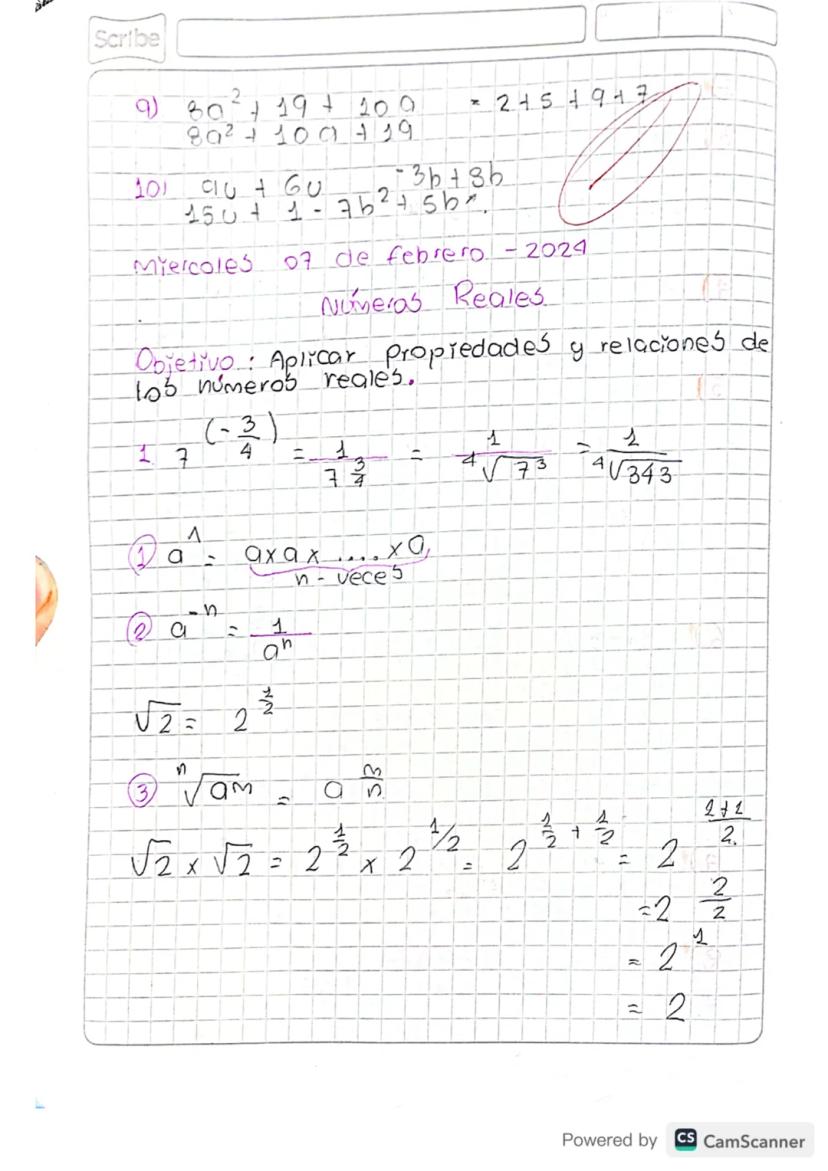 Scribe
9) 8a² + 19 + 10a = 2+5+9+7
8a² + 10a + 19
10) 9u + 6u -3b+8b
15u + 1 - 7b² + 5b
Miercoles 07 de febrero - 2024
Números Reales
Objetivo: Aplicar propiedades y relaciones de
los números reales.
1 7^(-3/4) = 1/7^(3/4) = 1/⁴√7³ = 1/⁴√343
① a^1 = a×a×....×a
n-veces
② a^-n = 1/a^n
√2 = 2^(1/2)
③ ⁿ√am = a^(m/n)
√2 × √2 = 2^(1/2) × 2^(1/2) = 2^(1/2 + 1/2) = 2^((1+1)/2)
=2^(2/2)
= 2^1
= 2
Powered by CS CamScanner